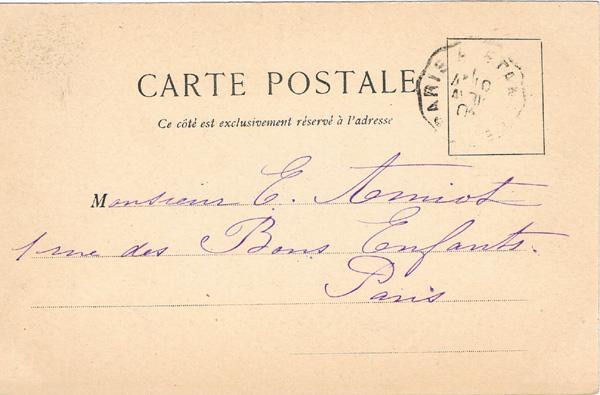 CARTE POSTALE
Ce côté est exclusivement réservé à l'adresse
PARIS
Monsieur E. Amiot
1 rue des Bons Enfants.
Paris